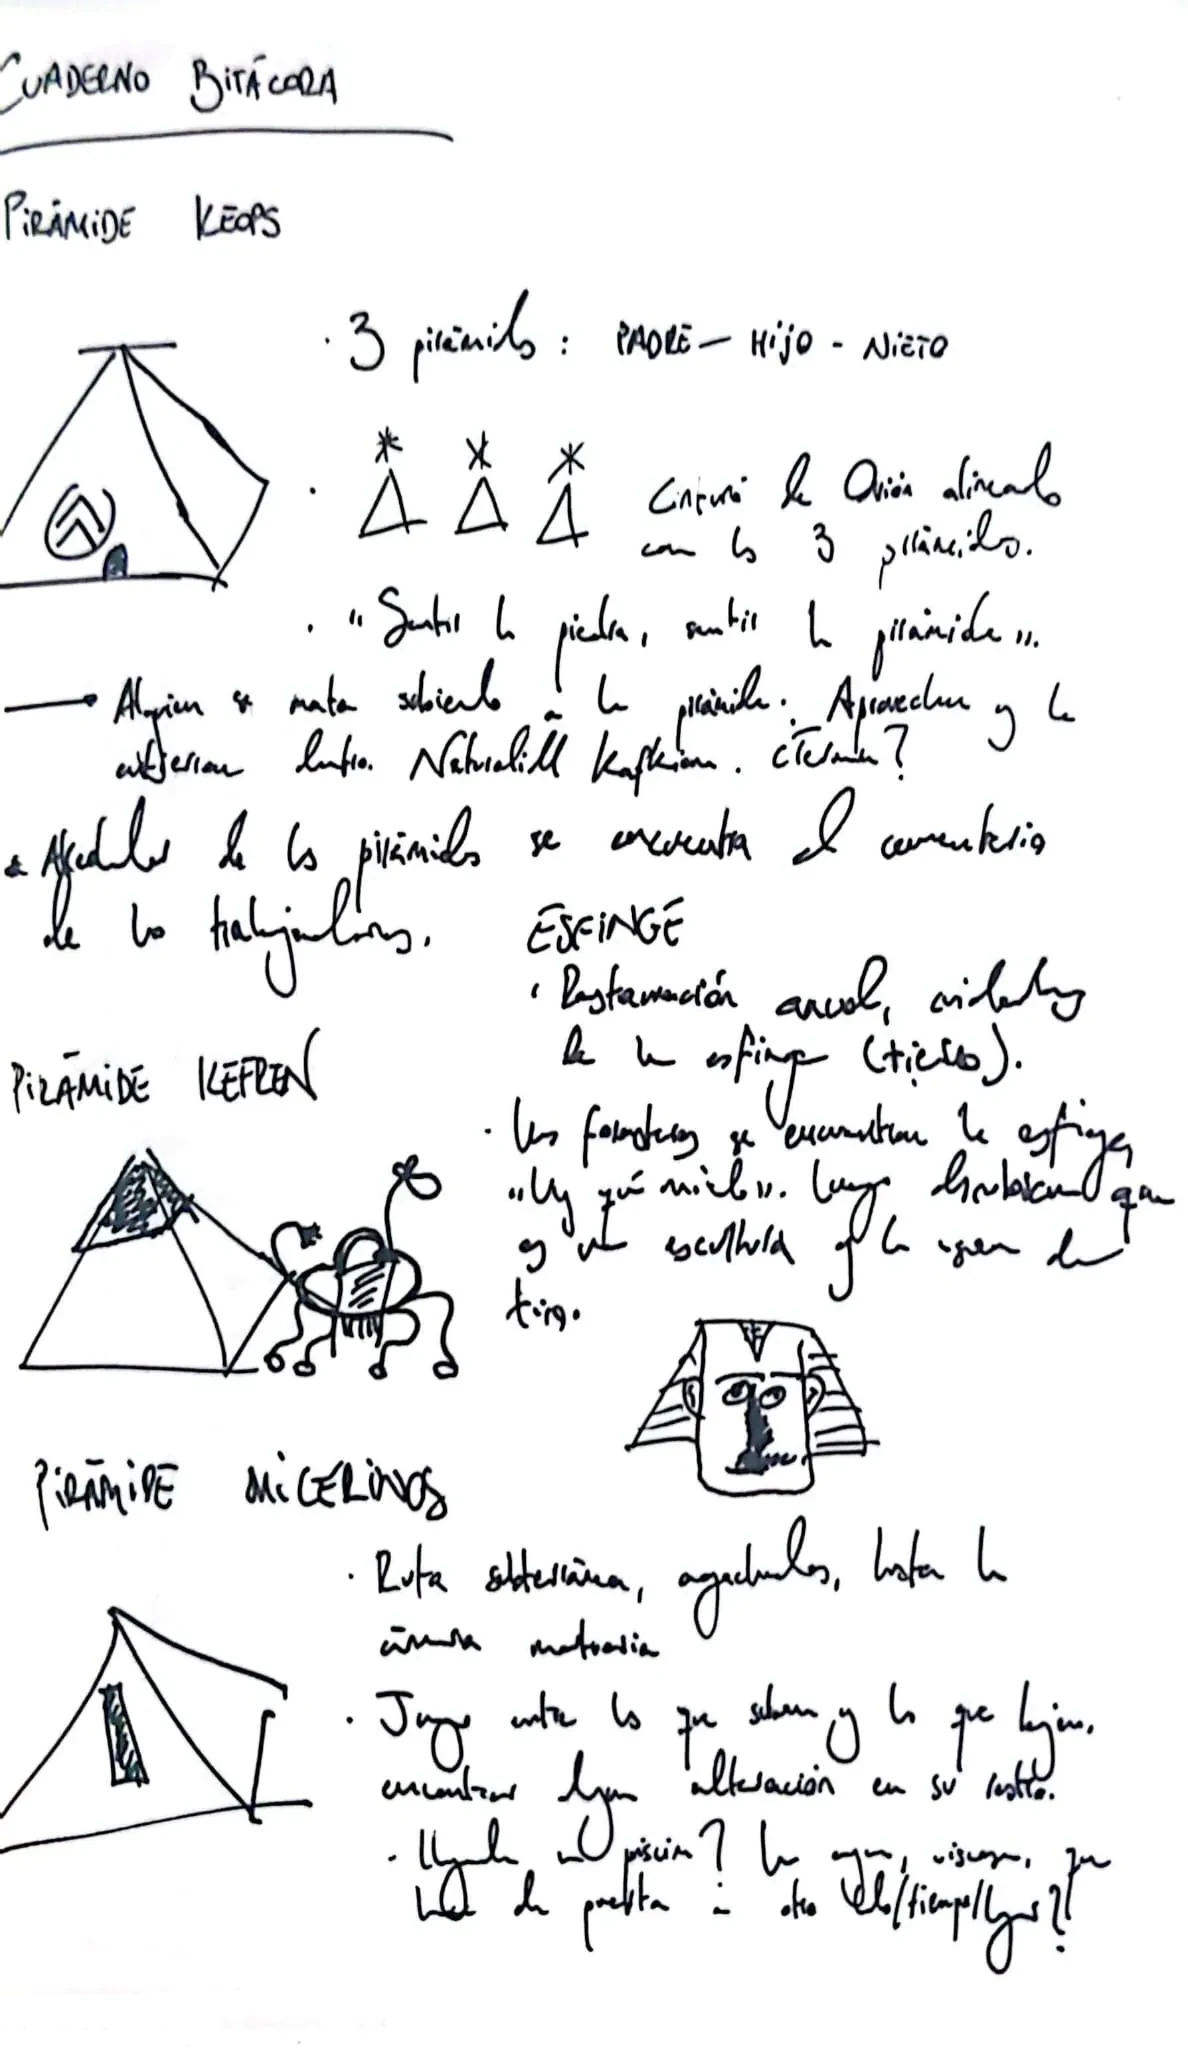 CUADERNO BITÁCORA
PIRÁMIDE KEOPS
· 3 pirámides : PADRE — HIJO - NIETO
· Cinturón de Orión alineado
con las 3 pirámides.
· "Sentir la piedra, sentir la pirámide".
Alguien se mata subiendo a la pirámide. Aprovechan y le
entierran dentro. Kafkiana.
Alrededor de las pirámides se encuentra el cementerio
de los trabajadores.
ESFINGE
· Restauración anual,
de la esfinge
PIRÁMIDE KEFREN
· Los se encuentran la esfinge,
"Uy qué miedo". Luego descubren que
es una escultura y la
PIRÁMIDE MICERINOS
· Ruta subterránea, agachados, hasta la
cámara mortuoria
· Juego entre los que suben y los que bajan,
encontrar alguna alteración en su rostro.
· una piscina? La agua, viscosa, que
de puerta a otro lado/tiempo/lugar?